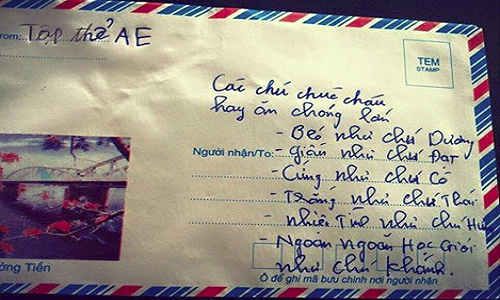 From: Tập thể AE
TEM
STAMP
Các chú chúc cháu
hay ăn chóng lớn
- Béo như chú Dương
Người nhận/To: - Giàu như chú Đạt
- Cứng như chú Có
- Trắng như chú Thái
- Nhiệt Tình như chú
- Ngoan ngoãn Học Giỏi
như chú Khánh.
ờng Tiền
Ô để ghi mã bưu chính nơi người nhận